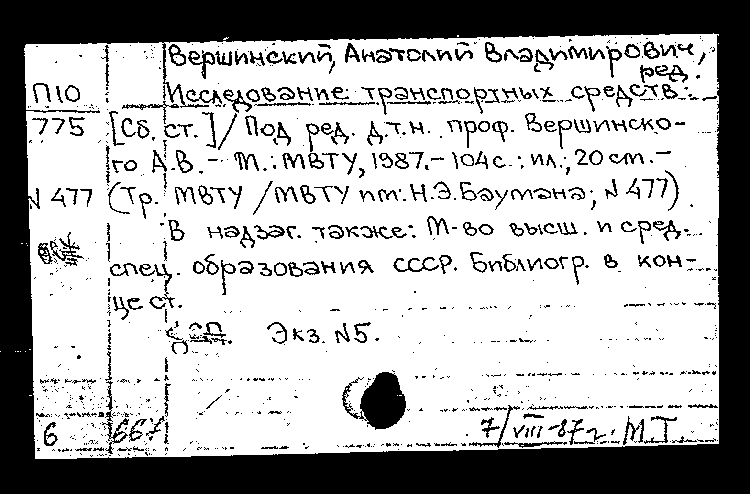 Вершинский, Анатолий Владимирович,
ред.
П10 Исследование транспортных средств:
775 [Сб. ст.] / Под ред. д.т.н. проф. Вершинско-
го А.В. - М.: МВТУ, 1987. - 104 с.: ил.; 20 см. -
N 477 (Тр. МВТУ / МВТУ им. Н.Э.Баумана; N 477).
В надзаг. также: М-во высш. и сред.
спец. образования СССР. Библиогр. в кон-
це ст.
Экз. N5.
6 667 7/VIII-87 г. М.Т.